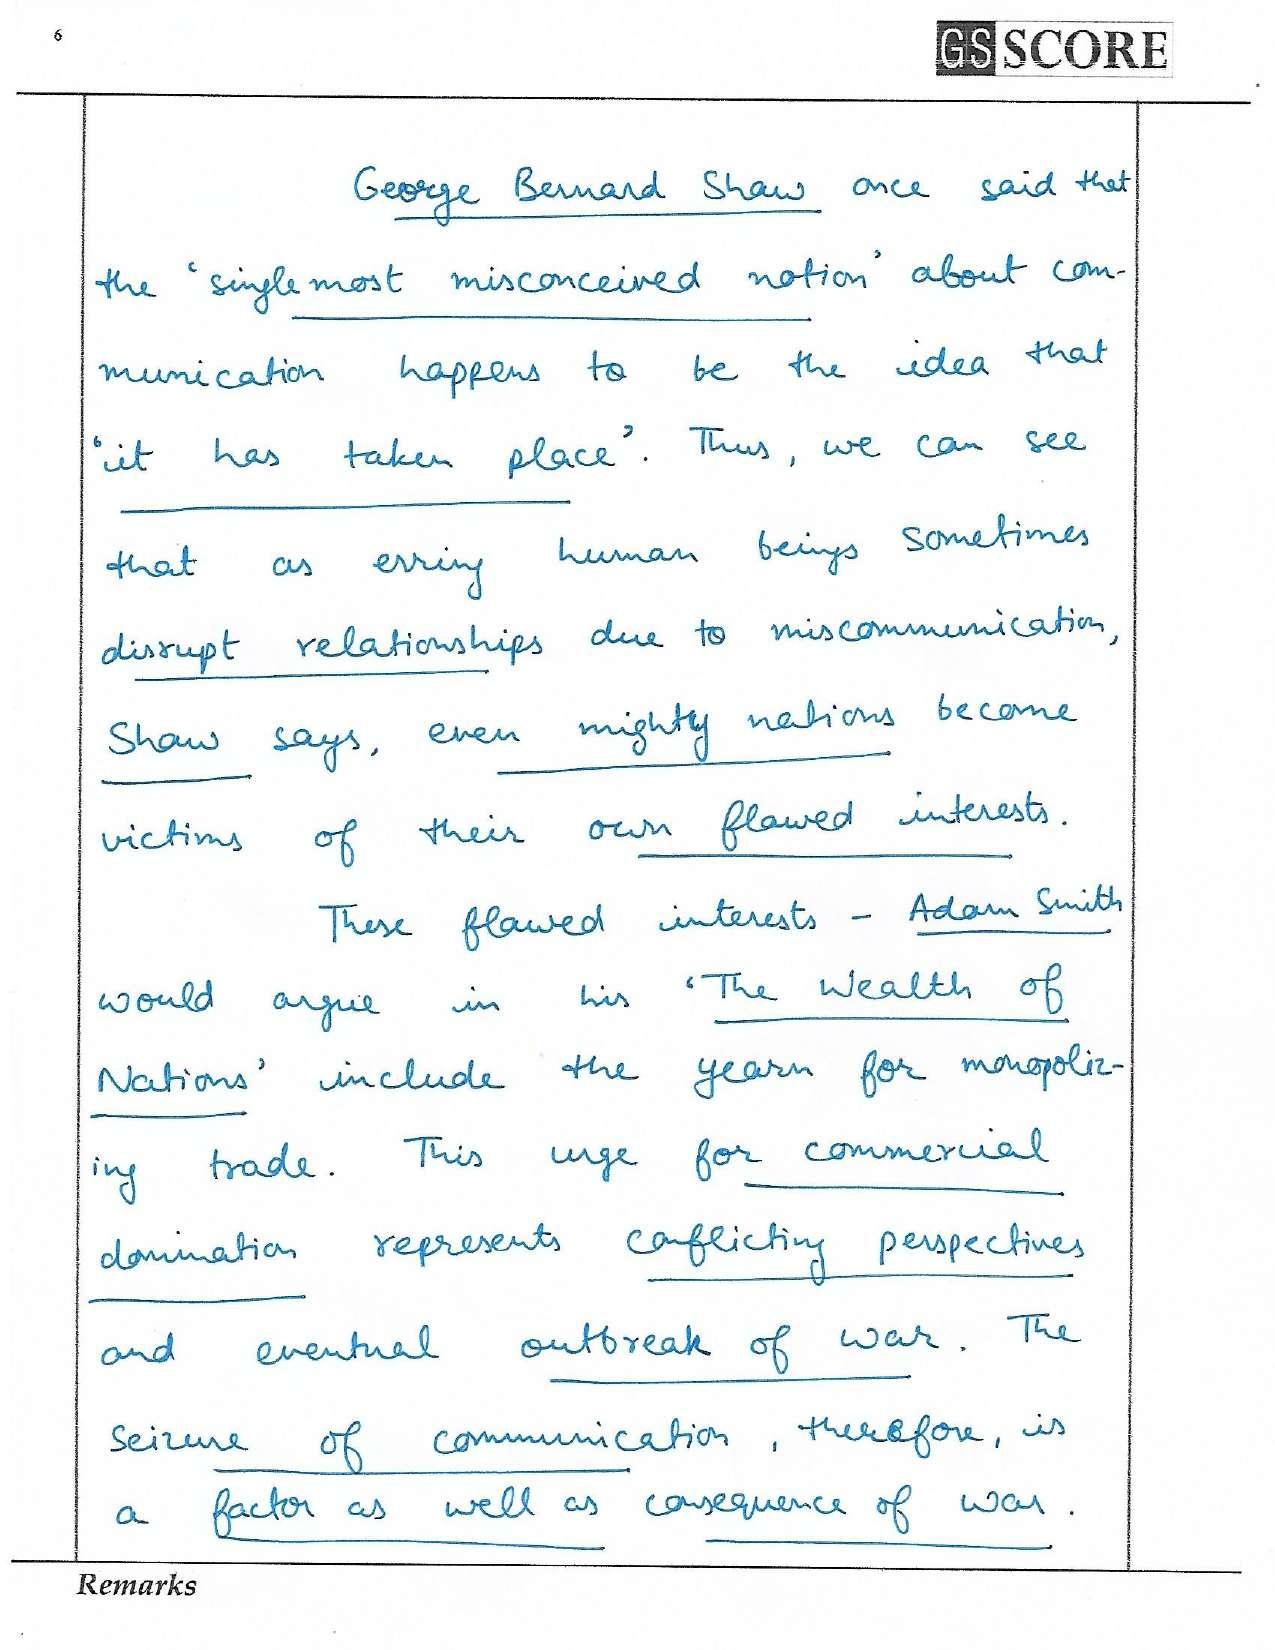 6
GS SCORE
George Bernard Shaw once said that
the 'single most misconceived notion' about com-
munication happens to be the idea that
'it has taken place'. Thus, we can see
that as erring human beings sometimes
disrupt relationships due to miscommunication,
Shaw says, even mighty nations become
victims of their own flawed interests.
These flawed interests - Adam Smith
would argue in his 'The Wealth of
Nations' include the yearn for monopoliz-
ing trade. This urge for commercial
domination represents conflicting perspectives
and eventual outbreak of war. The
seizure of communication, therefore, is
a factor as well as consequence of war.
Remarks